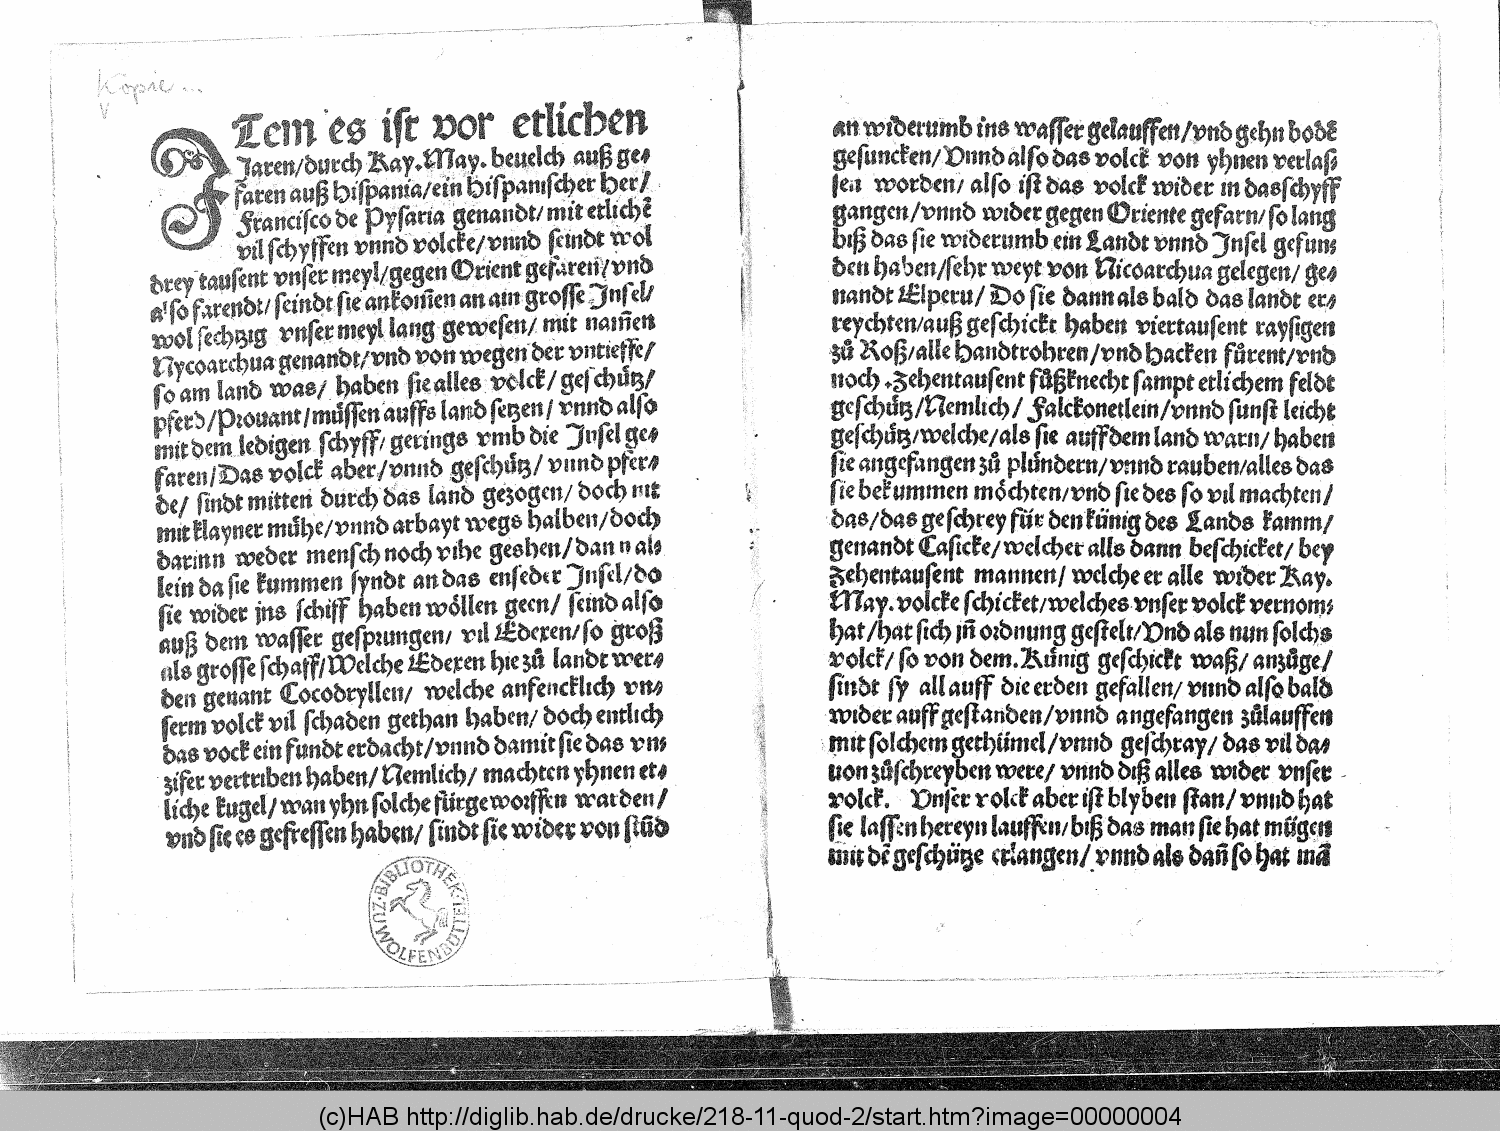 Kopie...
ITem es ist vor etlichen
Jaren/durch Kay.May. beuelch auß ge⸗
faren auß Hispania/ein Hispanischer Her/
Francisco de Pysaria genandt/mit etlichē
vil schyffen vnnd volcke/vnnd seindt wol
drey tausent vnser meyl/gegen Orient gefaren/vnd
also farendt/seindt sie ankom̄en an ain grosse Jnsel/
wol sechtzig vnser meyl lang gewesen/ mit namen
Nycoarchua genandt/vnd von wegen der vntieffe/
so am land was/ haben sie alles volck/geschütz/
pferd/Prouant/müssen auffs land setzen/vnnd also
mit dem ledigen schyff/gerings vmb die Jnsel ge⸗
faren/Das volck aber/vnnd geschütz/vnnd pfer⸗
de/ sindt mitten durch das land gezogen/doch nit
mit klayner mühe/vnnd arbayt wegs halben/doch
darinn weder mensch noch vihe gesehen/dann al⸗
lein da sie kummen syndt an das enseder Jnsel/do
sie wider jns schiff haben wöllen geen/ seind also
auß dem wasser gesprungen/ vil Edexen/so groß
als grosse schaff/Welche Edexen hie zů landt wer⸗
den genant Cocodryllen/ welche anfencklich vn⸗
serm volck vil schaden gethan haben/doch entlich
das vock ein fundt erdacht/vnnd damit sie das vn⸗
zifer vertriben haben/Nemlich/machten yhnen et⸗
liche kugel/wan yhn solche fürgeworffen warden/
vnd sie es gefressen haben/ sindt sie wider von stūd
BIBLIOTHEK
ZU WOLFENBÜTTEL
an widerumb ins wasser gelauffen/vnd gehn bodē
gesuncken/Vnnd also das volck von yhnen verlas⸗
sen worden/ also ist das volck wider in das schyff
gangen/vnnd wider gegen Oriente gefarn/so lang
biß das sie widerumb ein Landt vnnd Jnsel gefun⸗
den haben/sehr weyt von Nicoarchua gelegen/ ge⸗
nandt Elperu/Do sie dann als bald das landt er⸗
reychten/auß geschickt haben viertausent raysigen
zů Roß/alle Handtrohren/vnd Hacken fůrent/vnd
noch zehentausent fůßknecht sampt etlichem feldt
geschütz/Nemlich/ Falckonetlein/vnnd sunst leicht
geschütz/welche/als sie auff dem land warn/haben
sie angefangen zů plündern/vnnd rauben/alles das
sie bekummen möchten/vnd sie des so vil machten/
das/das geschrey für den künig des Lands kamm/
genandt Casicke/welcher alls dann beschicket/bey
zehentausent mannen/welche er alle wider Kay.
May. volcke schicket/welches vnser volck vernom⸗
hat/hat sich jn̄ ordnung gestelt/Vnd als nun solchs
volck/so von dem. Künig geschickt waß/ anzůge/
sindt sy all auff die erden gefallen/vnnd also bald
wider auff gestanden/vnnd angefangen zůlauffen
mit solchem gethümel/vnnd geschray/das vil da⸗
uon zůschreyben were/ vnnd diß alles wider vnser
volck. Vnser volck aber ist blyben stan/vnnd hat
sie lassen hereyn lauffen/biß das man sie hat mügen
mit dē geschütze erlangen/vnnd als dañ so hat mā
(c)HAB http://diglib.hab.de/drucke/218-11-quod-2/start.htm?image=00000004